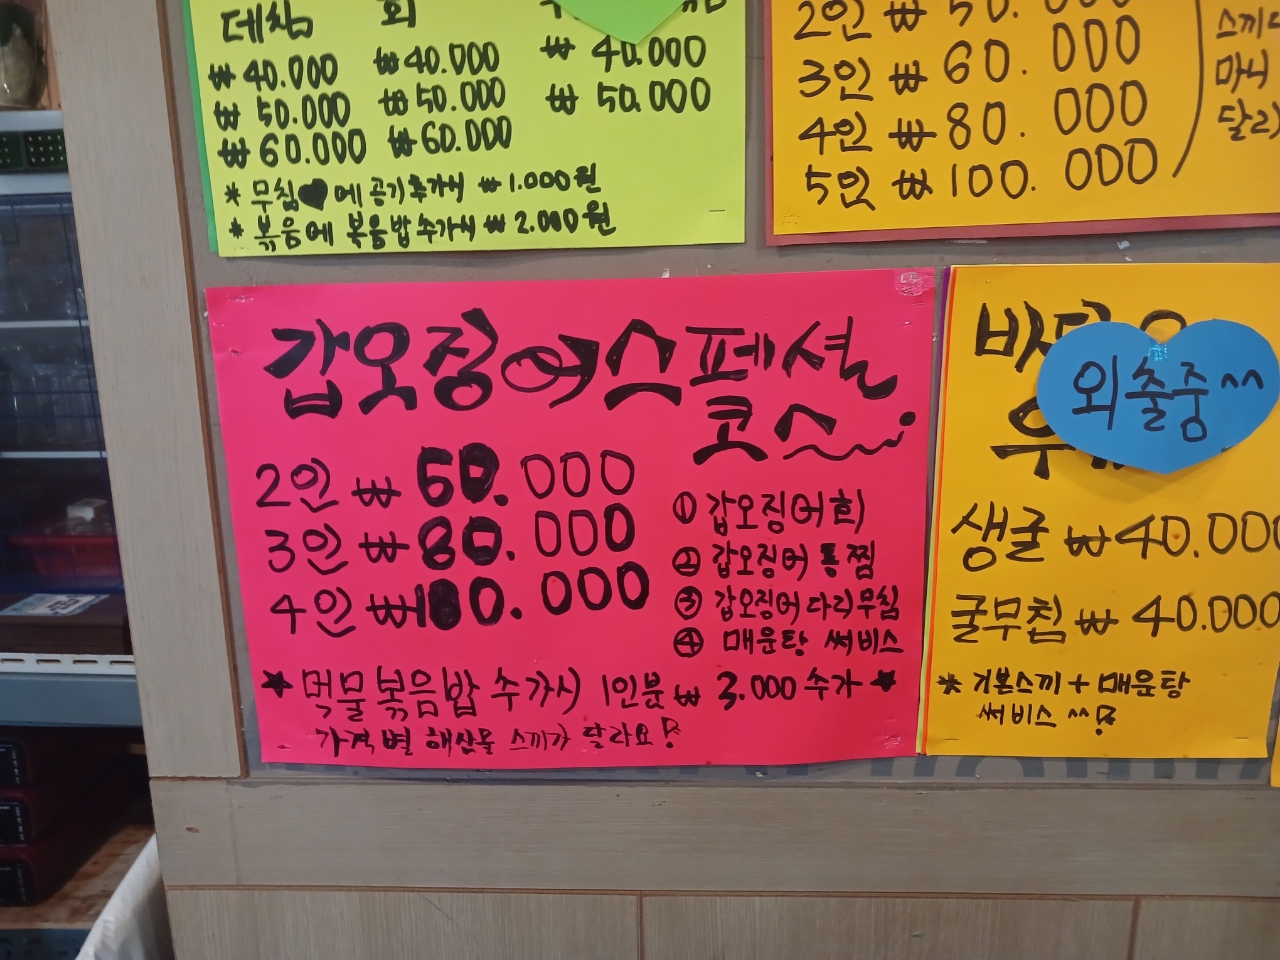 데침 회
₩40.000 ₩40.000 ₩40.000
₩50.000 ₩50.000 ₩50.000
₩60.000 ₩60.000
* 무침♥에 공기추가시 ₩1.000원
* 볶음에 볶음밥 추가시 ₩2.000원
2인 ₩50.000
3인 ₩60.000
4인 ₩80.000
5인 ₩100.000
갑오징어스페셜
코스
2인 ₩60.000
3인 ₩80.000
4인 ₩100.000
① 갑오징어회
② 갑오징어 통찜
③ 갑오징어 다리무침
④ 매운탕 써비스
★ 먹물볶음밥 추가시 1인분 ₩3.000 추가 ★
가격별 해산물 스끼가 달라요!
외출중^^
생굴 ₩40.000
굴무침 ₩40.000
* 기본스끼 + 매운탕
써비스 ^^!